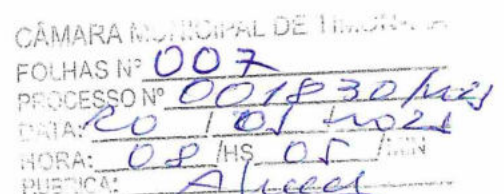 CÂMARA MUNICIPAL DE
FOLHAS Nº 007
PROCESSO Nº 001830/2025
DATA: 20 / 05 / 2025
HORA: 08 /HS 05 /MIN
RUBRICA: